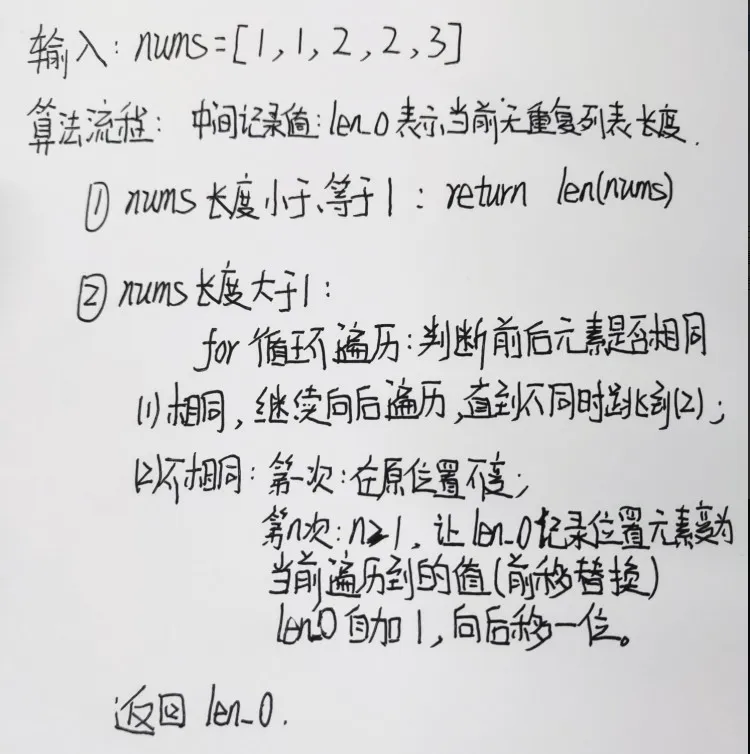 输入: nums=[1,1,2,2,3]
算法流程: 中间记录值: len_0 表示当前无重复列表长度.
① nums 长度小于、等于1: return len(nums)
② nums 长度大于1:
for 循环遍历: 判断前后元素是否相同
(1)相同, 继续向后遍历, 直到不同时跳到(2);
(2)不相同: 第一次: 在原位置不变;
第n次: n≥1, 让 len_0 记录位置元素变为
当前遍历到的值(前移替换)
len_0 自加1, 向后移一位。
返回 len_0.